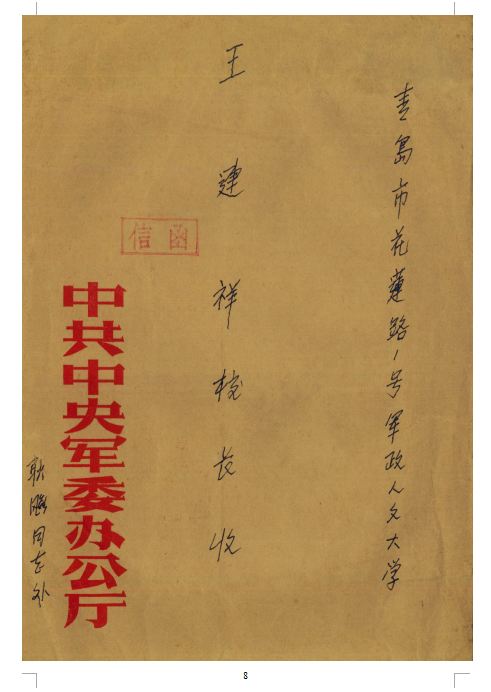 青岛市花莲路1号军政人文大学
王连祥校长收
信函
中共中央军委办公厅
耿飚同志补
8